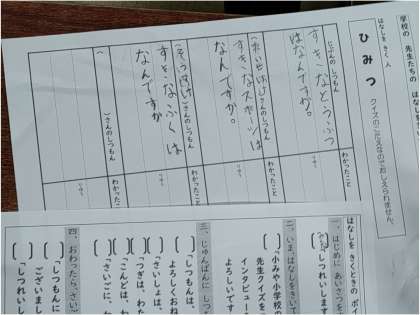 学校の 先生たちの はなしを
はなしを きく 人
ひみつ
クイズのこたえなのでおしえられません。
じぶんの しつもん
すきなどうぶつ
はなんですか。
わかったこと
りゆう
さんのしつもん
すきなスポーツは
なんですか。
わかったこと
りゆう
さんのしつもん
すきなふくは
なんですか
わかったこと
りゆう
さんのしつもん
はなしを きくときの ポイ
一、はじめに あいさつを
しつれいします
二、いま、はなしをきいて
「小みや小学校の
先生クイズを、
インタビュー
よろしいです
三、じゅんばんに しつ
「しつもんは、
よろしくおね
「さいしょは、
「つぎは、わた
「こんどは、わ
「さいごに、わ
四、おわったら、さい
「しつもんに
ございまし
「しつれいし